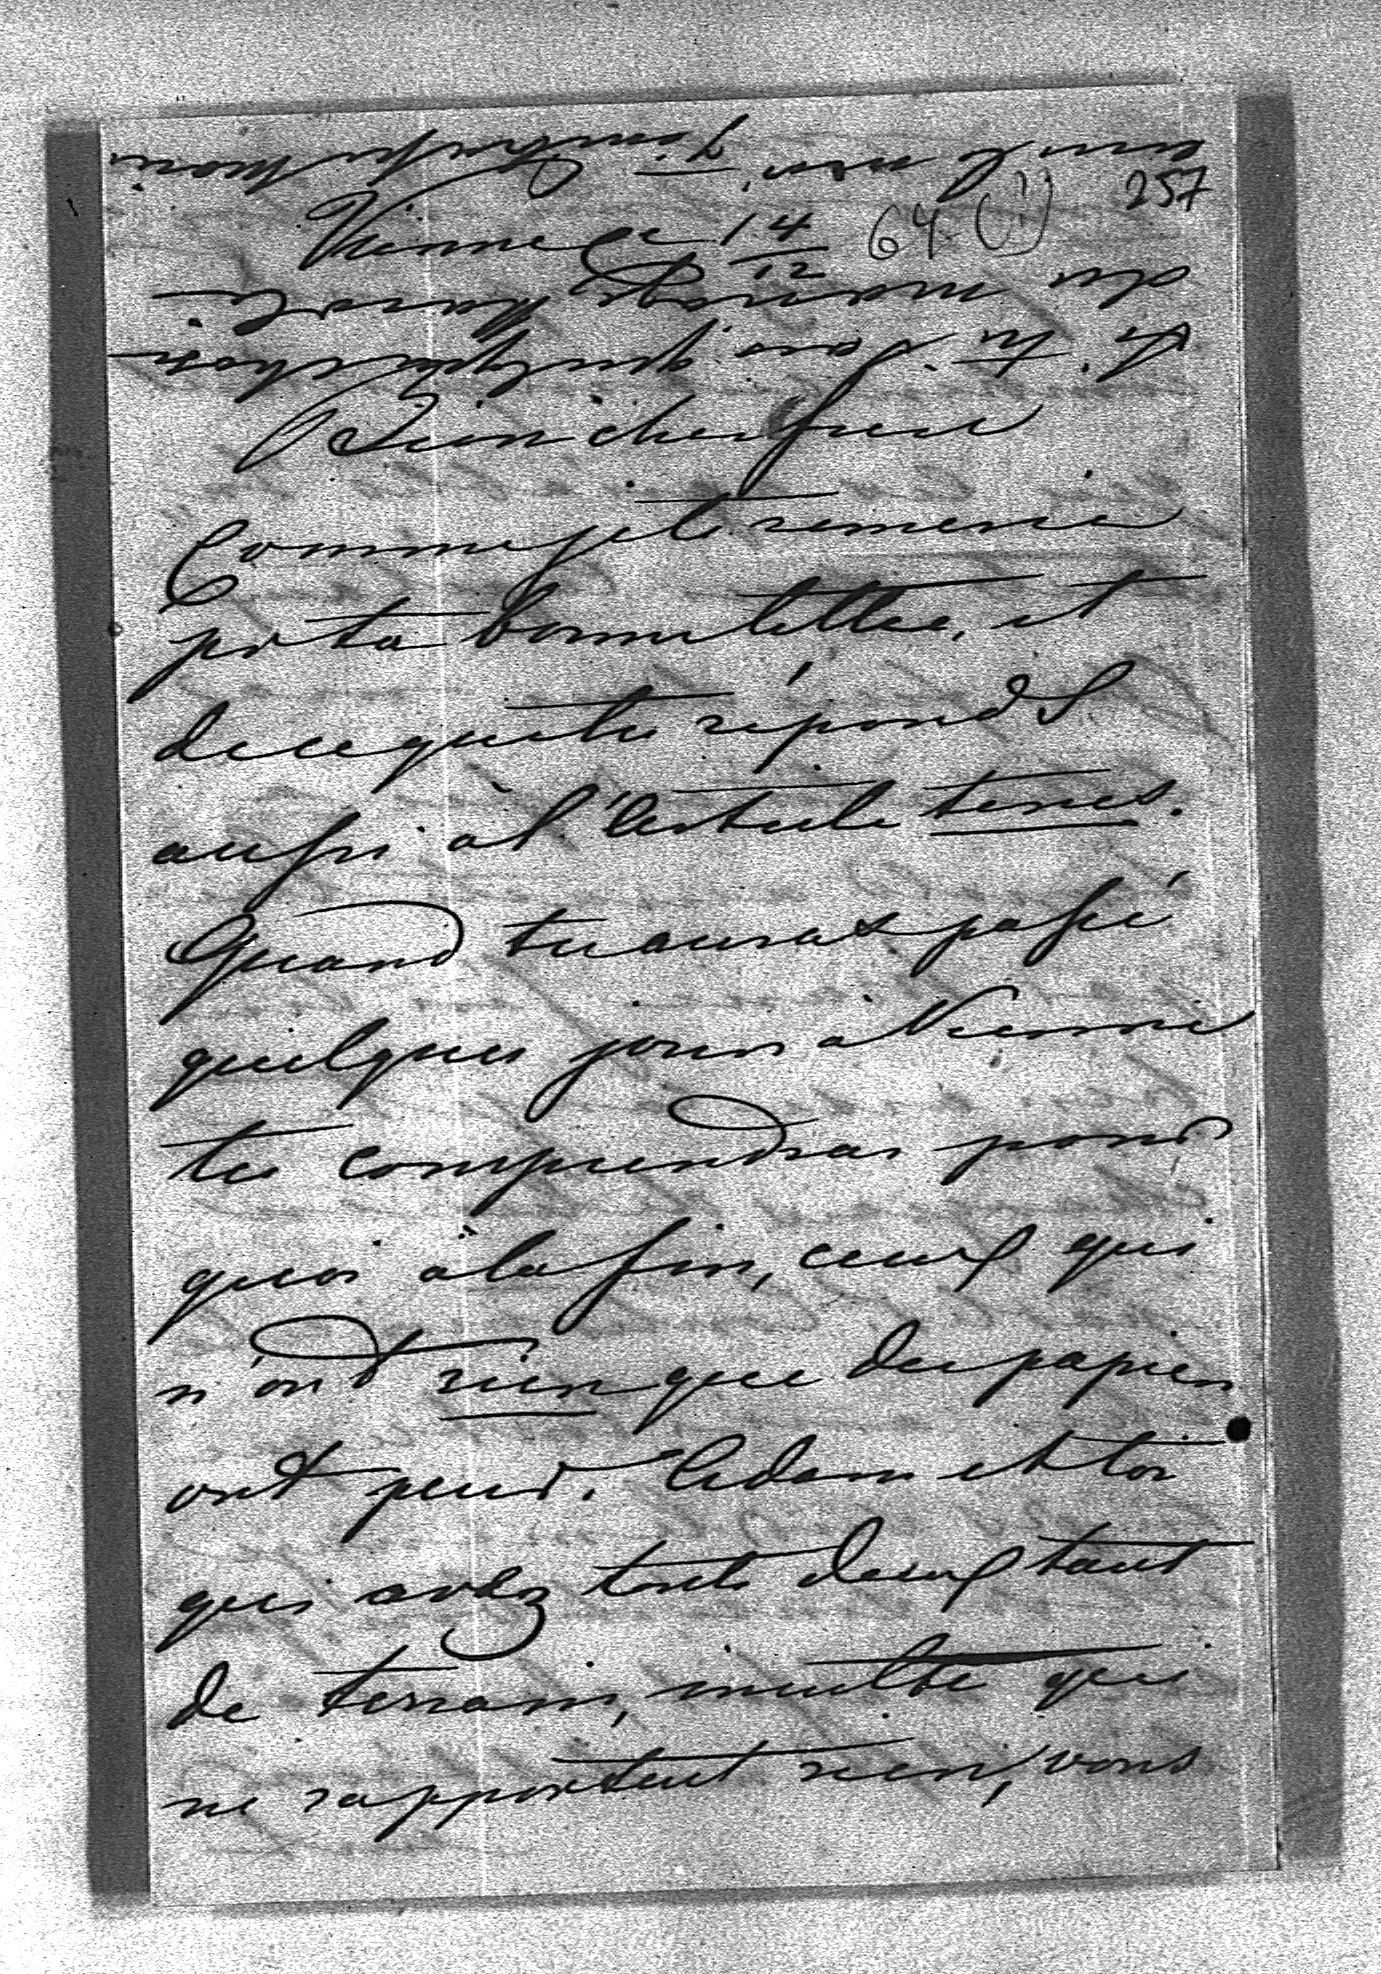 257
Vienne ce 14/12 64 (1)
Bien cher frère
Comme je te remercie
pr ta bonne lettre, et
de ce que tu réponds
aussi à l'article terres.
Quand tu auras passé
quelques jours à Vienne
tu comprendras pour
quoi à la fin, ceux qui
n'ont rien que des papiers
ont peur. Adam et toi
qui avez touts deux tant
de terrain, inculte qui
ne rapportent rien, vous